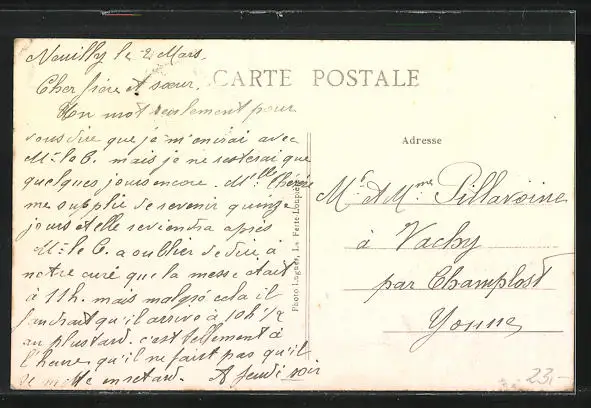 Neuilly le 2 Mars.
Cher frère et sœur.
Un mot seulement pour
vous dire que je m'en irai avec
Mr le C. mais je ne resterai que
quelques jours encore. Mlle Thérèse
me supplie de revenir quinze
jours et elle reviendra après
Mr le C. a oublier de dire à
notre curé que la messe était
à 11h. mais malgré cela il
faudrait qu'il arrive à 10h 1/2
au plus tard. c'est tellement à
l'heure qu'il ne faut pas qu'il
se mette en retard. A Jeudi soir
CARTE POSTALE
Adresse
Mr et Mme Pillavoine
à Vachy
par Champlost
Yonne
Photo Lugner, La Ferté-Loupière
23,-